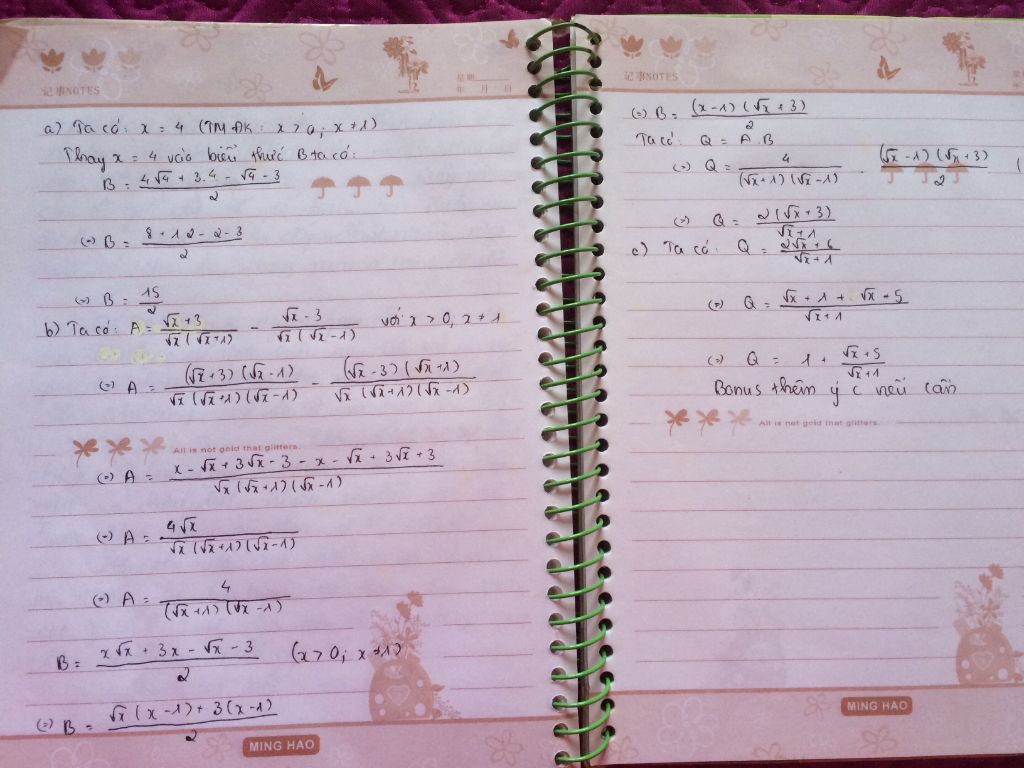 星期
记事NOTES 年 月 日
a) Ta có: x = 4 (TMĐK: x > 0; x ≠ 1)
Thay x = 4 vào biểu thức B ta có:
B = \frac{4√4 + 3.4 - √4 - 3}{2}
(=) B = \frac{8 + 12 - 2 - 3}{2}
(=) B = \frac{15}{2}
b) Ta có: A = \frac{√x + 3}{√x (√x+1)} - \frac{√x - 3}{√x (√x - 1)} với x > 0, x ≠ 1
(=) A = \frac{(√x+3) (√x-1)}{√x (√x+1) (√x-1)} - \frac{(√x-3) (√x+1)}{√x (√x+1) (√x-1)}
All is not gold that glitters.
(=) A = \frac{x - √x + 3√x - 3 - x - √x + 3√x + 3}{√x (√x+1) (√x-1)}
(=) A = \frac{4√x}{√x (√x+1) (√x-1)}
(=) A = \frac{4}{(√x+1) (√x-1)}
B = \frac{x√x + 3x - √x - 3}{2} (x > 0; x ≠ 1)
(=) B = \frac{√x (x-1) + 3(x-1)}{2}
MING HAO
记事NOTES
(=) B = \frac{(x-1) (√x+3)}{2}
Ta có: Q = A.B
(=) Q = \frac{4}{(√x+1) (√x-1)} . \frac{(√x-1) (√x+3)}{2}
(=) Q = \frac{2(√x+3)}{√x+1}
c) Ta có: Q = \frac{2√x + 6}{√x + 1}
(=) Q = \frac{√x + 1 + √x + 5}{√x + 1}
(=) Q = 1 + \frac{√x+5}{√x+1}
Bonus thêm ý c nếu cần
All is not gold that glitters.
MING HAO